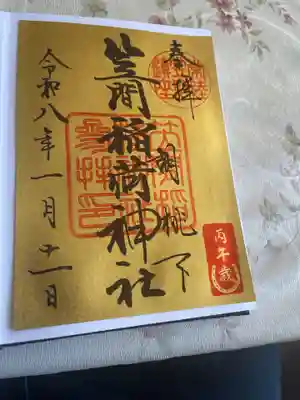 奉拝
胡桃下
笠間稲荷神社
令和八年一月十一日
丙午歳